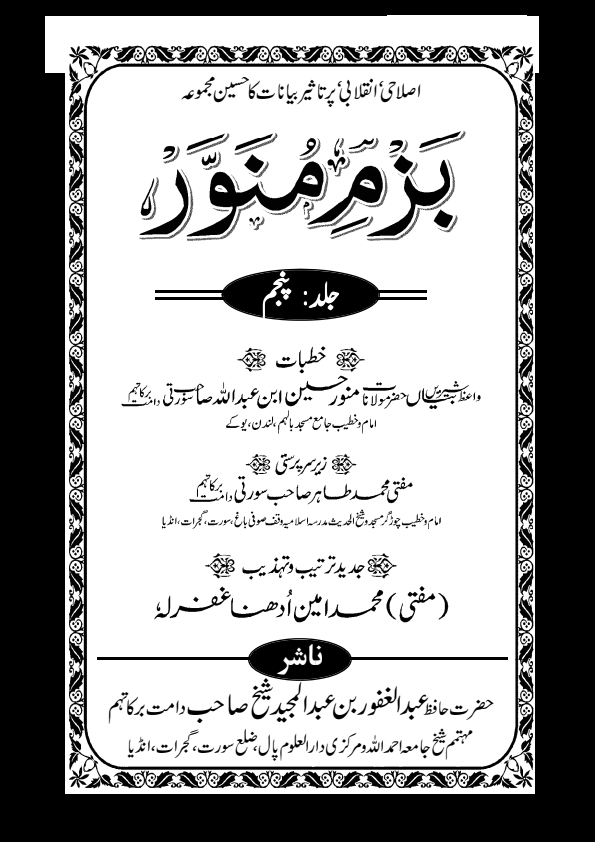 اصلاحی، انقلابی، پرتاثیر بیانات کا حسین مجموعہ
بَزْمِ مُنَوَّرْ
جلد: پنجم
خطبات
واعظ شیریں بیاں حضرت مولانا منور حسین ابن عبداللہ صاحب سورتی دامت برکاتہم
امام و خطیب جامع مسجد بالہم، لندن، یوکے
زیر سرپرستی
مفتی محمد طاہر صاحب سورتی دامت برکاتہم
امام و خطیب چوڑگر مسجد و شیخ الحدیث مدرسہ اسلامیہ وقف صوفی باغ، سورت، گجرات، انڈیا
جدید ترتیب و تہذیب
(مفتی) محمد امین اُدھنا غفرلہٗ
ناشر
حضرت حافظ عبدالغفور بن عبدالمجید شیخ صاحب دامت برکاتہم
مہتمم شیخ جامعہ احمد اللہ و مرکزی دارالعلوم پال، ضلع سورت، گجرات، انڈیا